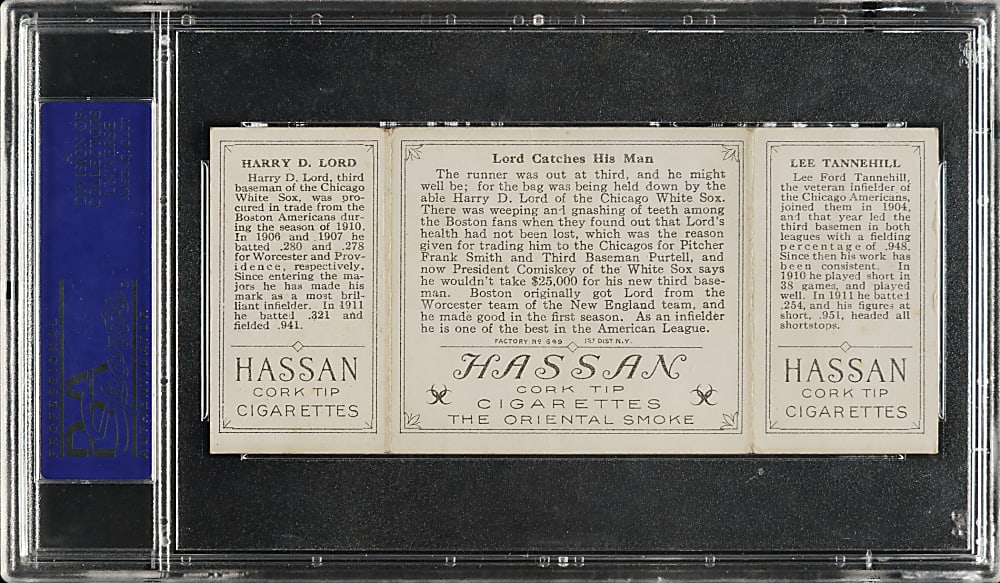 HARRY D. LORD
Harry D. Lord, third
baseman of the Chicago
White Sox, was pro-
cured in trade from the
Boston Americans dur-
ing the season of 1910.
In 1906 and 1907 he
batted .280 and .278
for Worcester and Prov-
idence, respectively.
Since entering the ma-
jors he has made his
mark as a most bril-
liant infielder. In 1911
he batted .321 and
fielded .941.
HASSAN
CORK TIP
CIGARETTES
Lord Catches His Man
The runner was out at third, and he might
well be; for the bag was being held down by the
able Harry D. Lord of the Chicago White Sox.
There was weeping and gnashing of teeth among
the Boston fans when they found out that Lord's
health had not been lost, which was the reason
given for trading him to the Chicagos for Pitcher
Frank Smith and Third Baseman Purtell, and
now President Comiskey of the White Sox says
he wouldn't take $25,000 for his new third base-
man. Boston originally got Lord from the
Worcester team of the New England team, and
he made good in the first season. As an infielder
he is one of the best in the American League.
FACTORY Nº 649 1ST DIST N.Y.
HASSAN
CORK TIP
CIGARETTES
THE ORIENTAL SMOKE
LEE TANNEHILL
Lee Ford Tannehill,
the veteran infielder of
the Chicago Americans,
joined them in 1904,
and that year led the
third basemen in both
leagues with a fielding
percentage of .948.
Since then his work has
been consistent. In
1910 he played short in
38 games, and played
well. In 1911 he batted
.254, and his figures at
short, .951, headed all
shortstops.
HASSAN
CORK TIP
CIGARETTES
A
DIVISION OF
COLLECTORS
UNIVERSE
PROFESSIONAL
PSA
AUTHENTICATOR